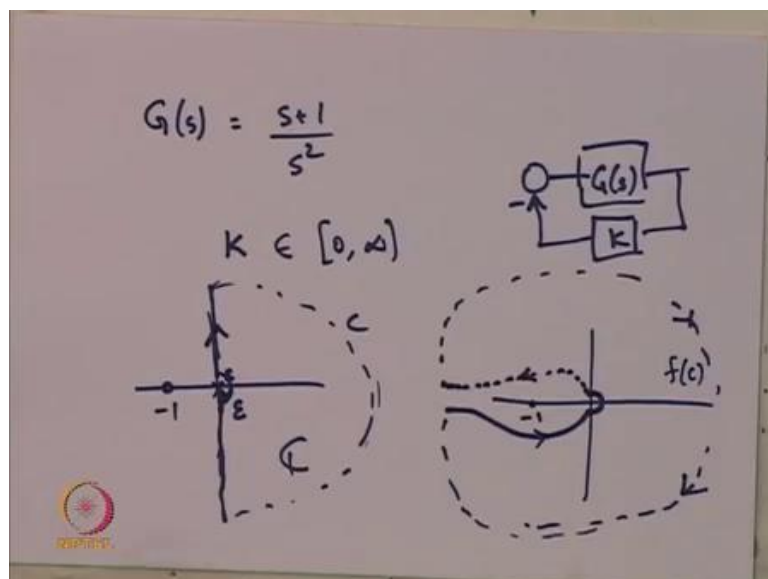 G(s) = s+1
s²
G(s)
-
K
K ∈ [0, ∞)
C
f(c)
-1
ε
-1
NPTEL